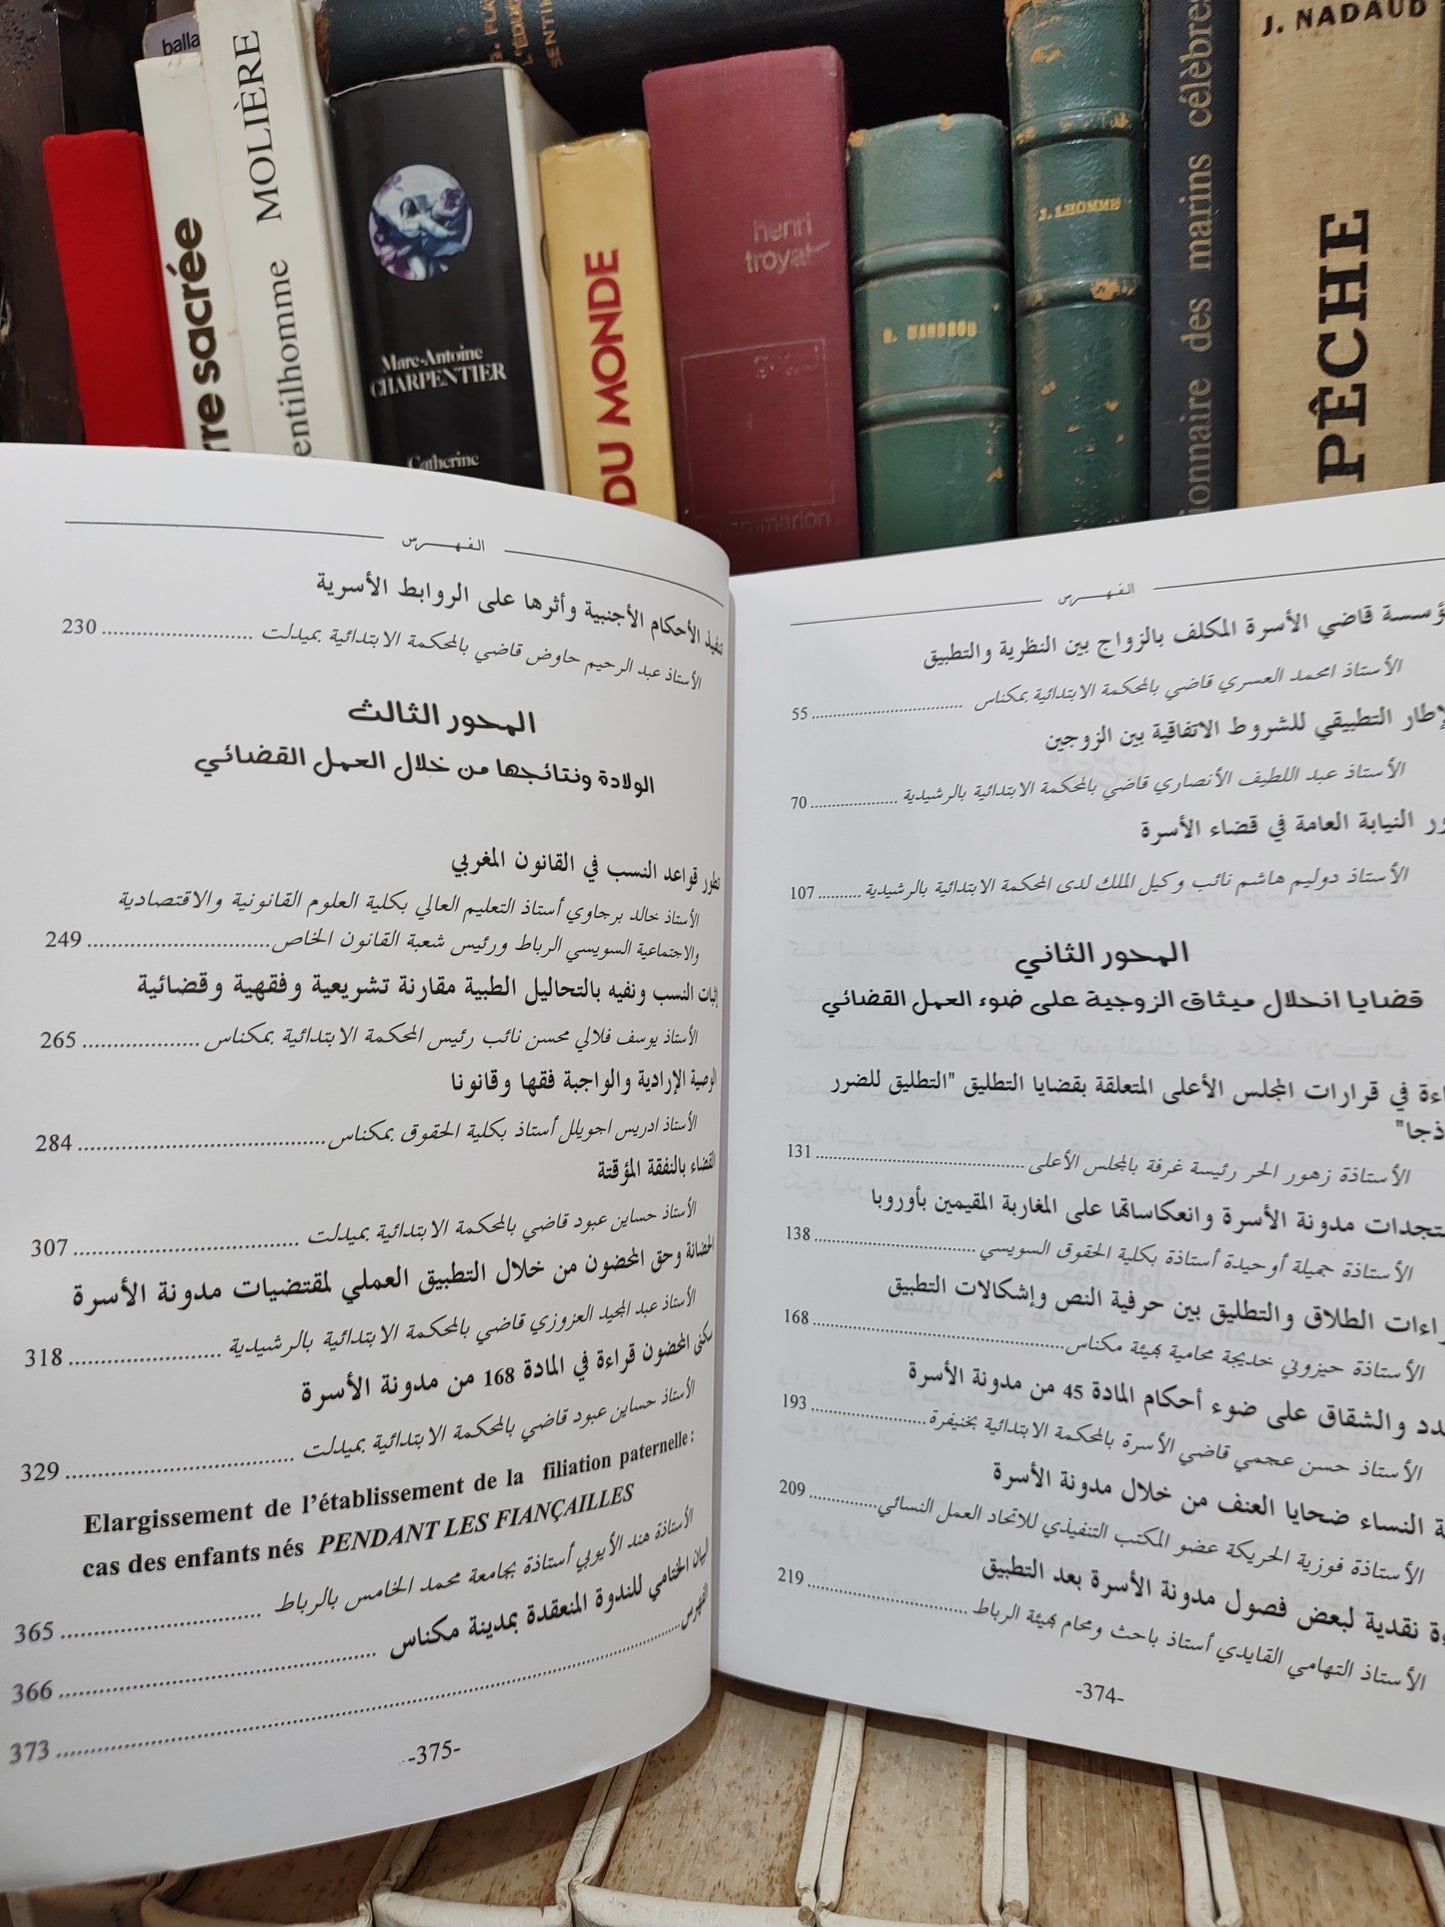 balla
rre sacrée
MOLIÈRE
entilhomme
Marc-Antoine
CHARPENTIER
Catherine
L'EDUC
SENTI
DU MONDE
henri
troyat
flammarion
R. MANDROU
J. LHOMME
ionnaire des marins célèbre
J. NADAUD
PÊCHE
الفهرس
ؤسسة قاضي الأسرة المكلف بالزواج بين النظرية والتطبيق
الأستاذ امحمد العسري قاضي بالمحكمة الابتدائية بمكناس ........ 55
لإطار التطبيقي للشروط الاتفاقية بين الزوجين
الأستاذ عبد اللطيف الأنصاري قاضي بالمحكمة الابتدائية بالرشيدية ........ 70
ور النيابة العامة في قضاء الأسرة
الأستاذ دوليم هاشم نائب وكيل الملك لدى المحكمة الابتدائية بالرشيدية ........ 107
المحور الثاني
قضايا انحلال ميثاق الزوجية على ضوء العمل القضائي
اءة في قرارات المجلس الأعلى المتعلقة بقضايا التطليق "التطليق للضرر
ذجا"
الأستاذة زهور الحر رئيسة غرفة بالمجلس الأعلى ........ 131
ستجدات مدونة الأسرة وانعكاساتها على المغاربة المقيمين بأوروبا
الأستاذة جميلة أوحيدة أستاذة بكلية الحقوق السويسي ........ 138
راءات الطلاق والتطليق بين حرفية النص وإشكالات التطبيق
الأستاذة حيزوني خديجة محامية بهيئة مكناس ........ 168
دد والشقاق على ضوء أحكام المادة 45 من مدونة الأسرة
الأستاذ حسن عجمي قاضي الأسرة بالمحكمة الابتدائية بخنيفرة ........ 193
ة النساء ضحايا العنف من خلال مدونة الأسرة
الأستاذة فوزية الحريكة عضو المكتب التنفيذي للاتحاد العمل النسائي ........ 209
ءة نقدية لبعض فصول مدونة الأسرة بعد التطبيق
الأستاذ التهامي القايدي أستاذ باحث ومحام بهيئة الرباط ........ 219
-374-
الفهرس
تنفيذ الأحكام الأجنبية وأثرها على الروابط الأسرية
الأستاذ عبد الرحيم حاوض قاضي بالمحكمة الابتدائية بميدلت ........ 230
المحور الثالث
الولادة ونتائجها من خلال العمل القضائي
تطور قواعد النسب في القانون المغربي
الأستاذ خالد برجاوي أستاذ التعليم العالي بكلية العلوم القانونية والاقتصادية
والاجتماعية السويسي الرباط ورئيس شعبة القانون الخاص ........ 249
إثبات النسب ونفيه بالتحاليل الطبية مقارنة تشريعية وفقهية وقضائية
الأستاذ يوسف فلالي محسن نائب رئيس المحكمة الابتدائية بمكناس ........ 265
الوصية الإرادية والواجبة فقها وقانونا
الأستاذ ادريس اجويلل أستاذ بكلية الحقوق بمكناس ........ 284
القضاء بالنفقة المؤقتة
الأستاذ حساين عبود قاضي بالمحكمة الابتدائية بميدلت ........ 307
الحضانة وحق المحضون من خلال التطبيق العملي لمقتضيات مدونة الأسرة
الأستاذ عبد المجيد العزوزي قاضي بالمحكمة الابتدائية بالرشيدية ........ 318
سكنى المحضون قراءة في المادة 168 من مدونة الأسرة
الأستاذ حساين عبود قاضي بالمحكمة الابتدائية بميدلت ........ 329
Elargissement de l'établissement de la filiation paternelle :
cas des enfants nés PENDANT LES FIANÇAILLES
الأستاذة هند الأيوبي أستاذة بجامعة محمد الخامس بالرباط ........ 365
البيان الختامي للندوة المنعقدة بمدينة مكناس ........ 366
الفهرس ........ 373
-375-